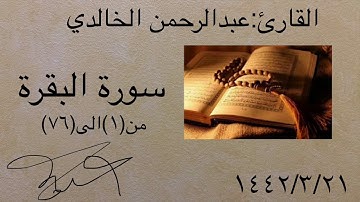 القارئ:عبدالرحمن الخالدي
سورة البقرة
من(١)الى(٧٦)
١٤٤٢/٣/٢١